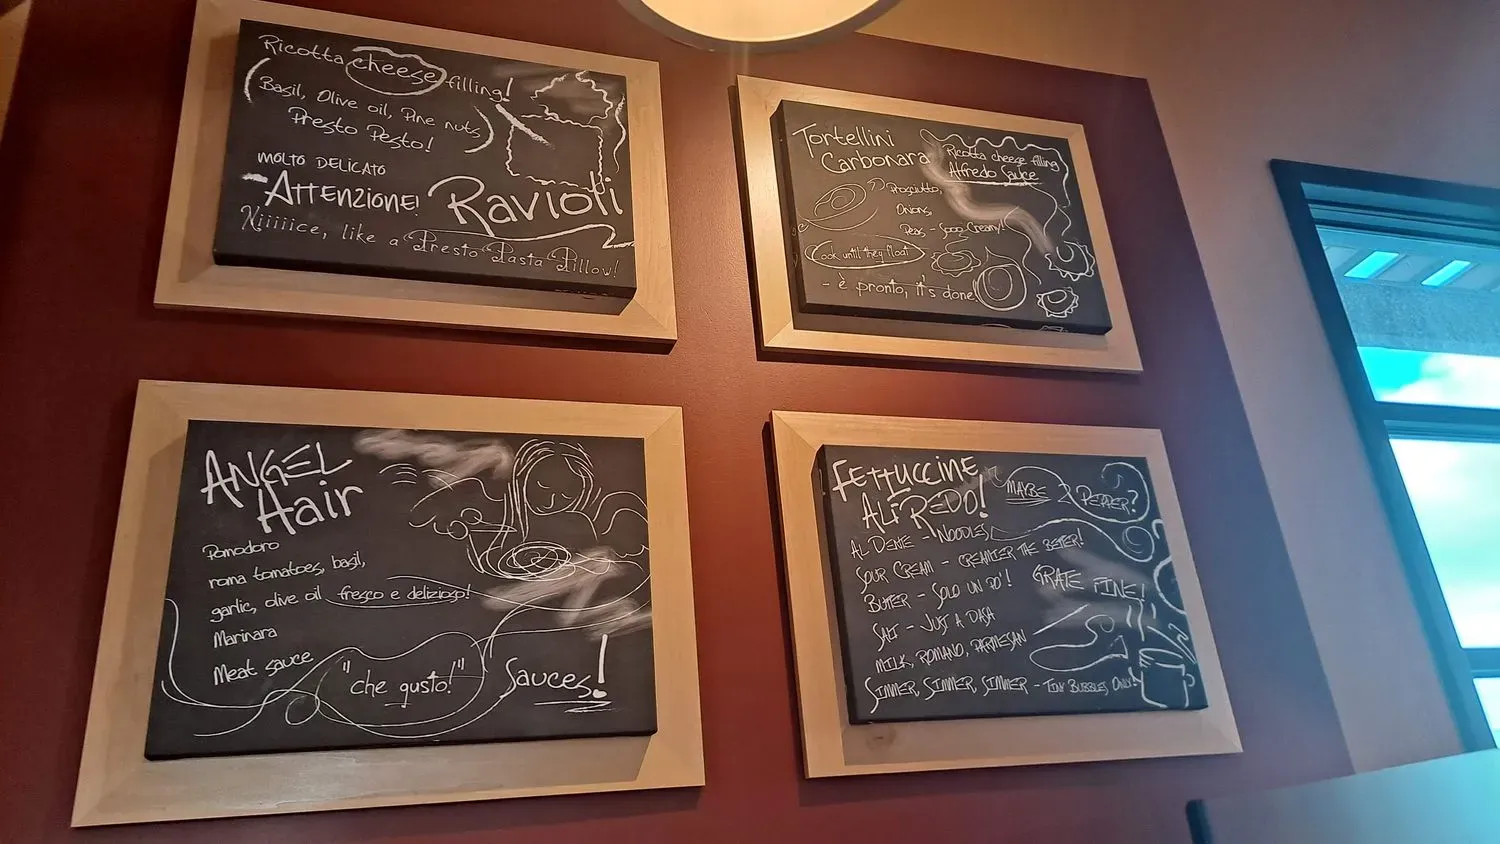 Ricotta cheese filling!
(Basil, Olive oil, Pine nuts)
Presto Pesto!
MOLTO DELICATO
-ATTENZIONE!
Ravioli
Niiiiice, like a Presto Pasta Pillow!
Tortellini
Carbonara
Ricotta cheese filling
Alfredo Sauce
Prosciutto,
Onions,
Peas - Sooo Creamy!
Cook until they float
- è pronto, it's done.
ANGEL
Hair
Pomodoro
roma tomatoes, basil,
garlic, olive oil fresco e delizioso!
Marinara
Meat sauce
"che gusto!"
Sauces!
FETTUCCINE
ALFREDO!
MAYBE PEPPER?
AL DENTE - NOODLES
SOUR CREAM - CREAMIER THE BETTER!
BUTTER - SOLO UN PO'!
GRATE FINE!
SALT - JUST A DASH
MILK, ROMANO, PARMESAN
SIMMER, SIMMER, SIMMER - TINY BUBBLES ONLY!